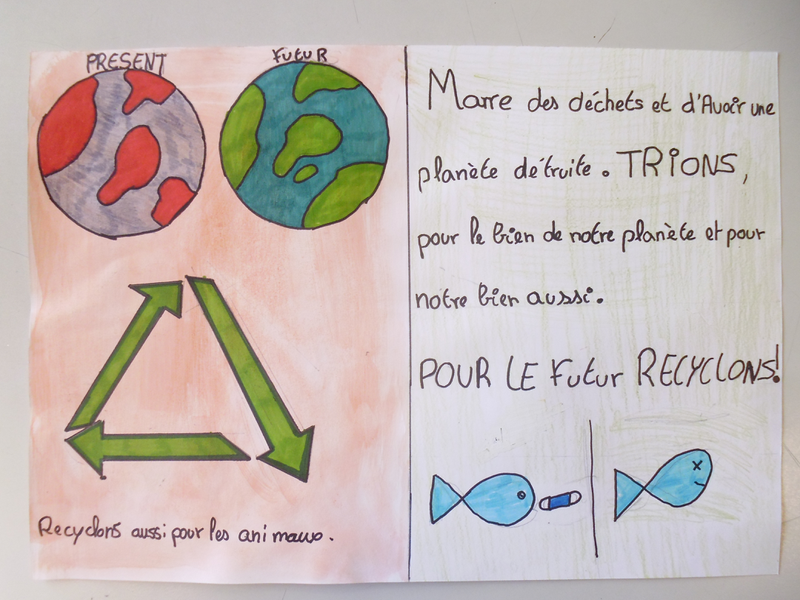 PRESENT
FUTUR
Recyclons aussi pour les animaux.
Marre des déchets et d'Avoir une
planète détruite. TRIONS,
pour le bien de notre planète et pour
notre bien aussi.
POUR LE Futur RECYCLONS!